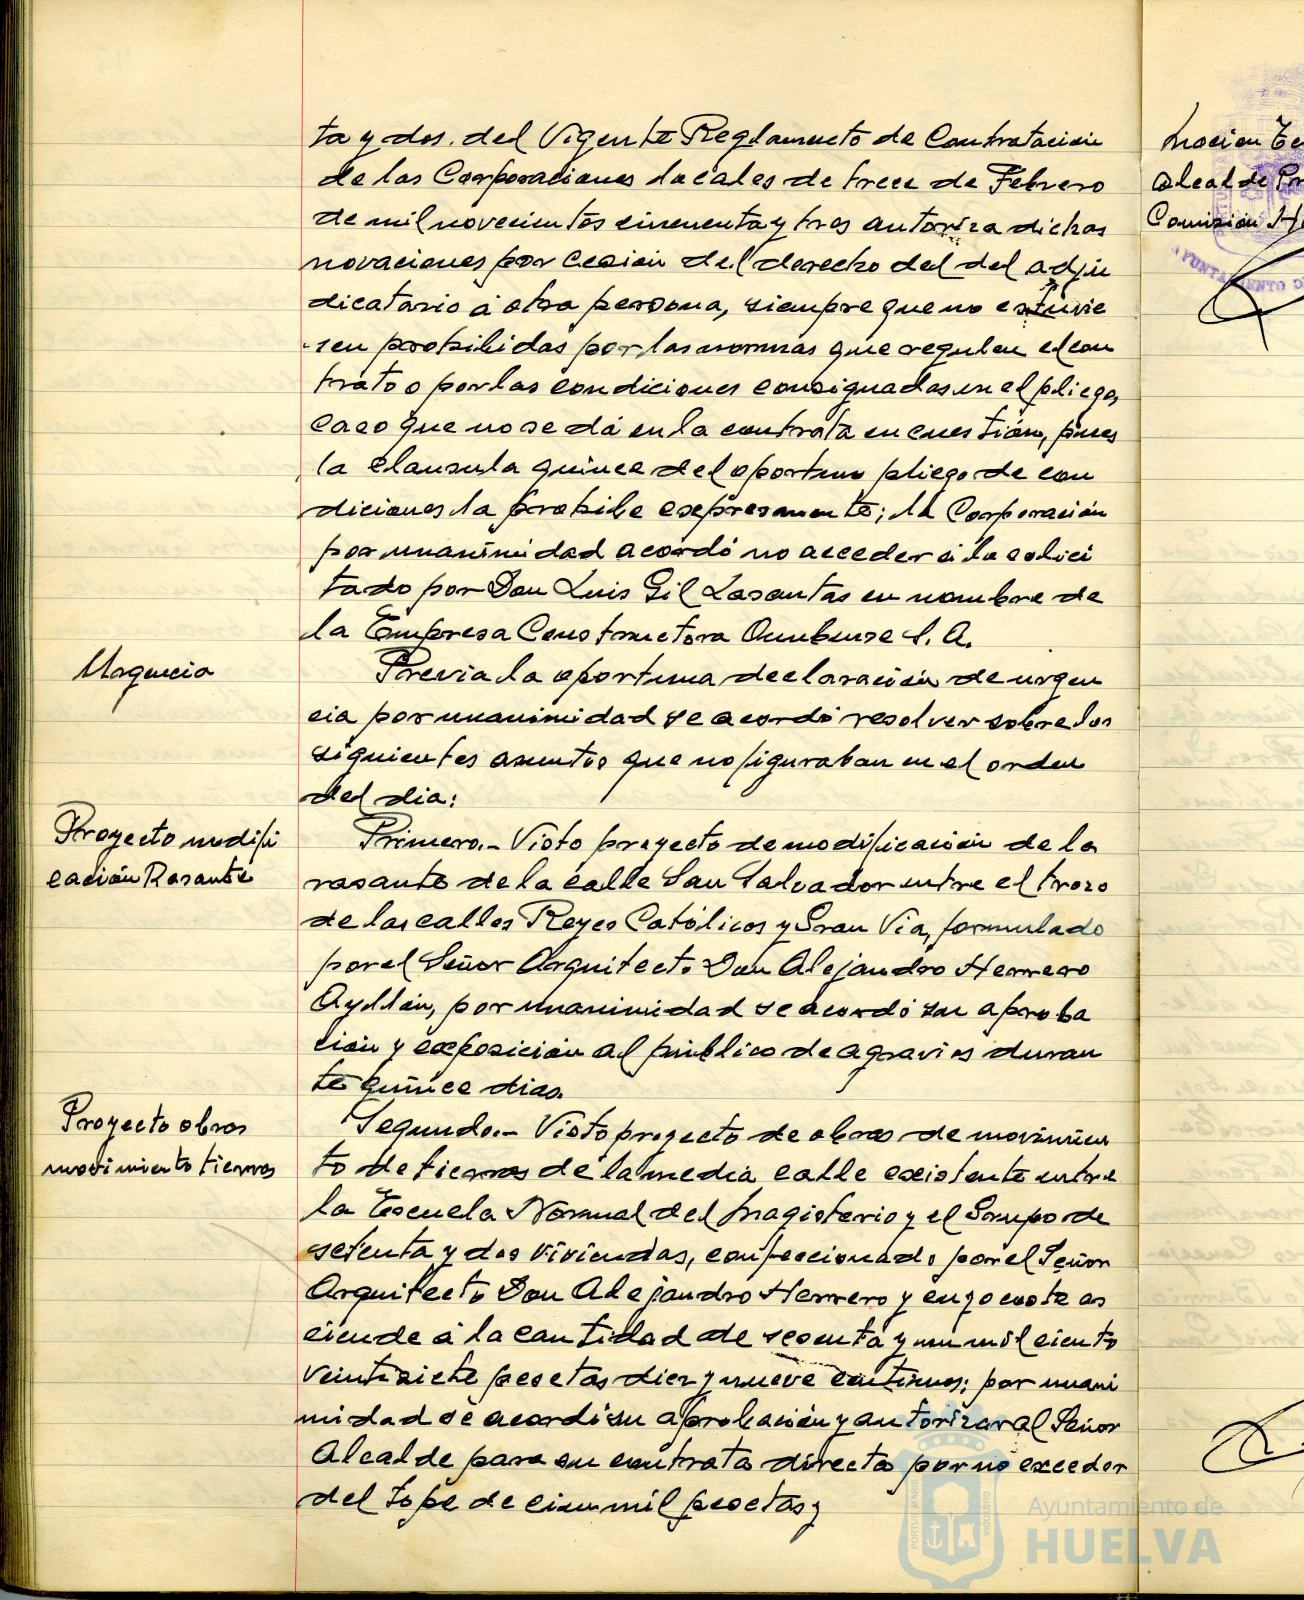 ta y dos. del Vigente Reglamento de Contratación
de las Corporaciones locales de trece de Febrero
de mil novecientos cincuenta y tres autoriza dichas
novaciones por cesión del derecho del del adju
dicatario á otra persona, siempre que no estuvie
sen prohibidas por las normas que regulen el con
trato o por las condiciones consignadas en el pliego,
caso que no se dá en la contrata en cuestión, pues
la clausula quince del oportuno pliego de con
diciones la prohibe expresamente; la Corporación
por unanimidad acordó no acceder á lo solici
tado por Don Luis Gil Lasantas en nombre de
la Empresa Constructora Onubense S. A.
Urgencia
Previa la oportuna declaración de urgen
cia por unanimidad se acordó resolver sobre los
siguientes asuntos que no figuraban en el orden
del dia:
Proyecto modifi
cación Rasante
Primero.- Visto proyecto de modificación de la
rasante de la calle San Salvador entre el trozo
de las calles Reyes Católicos y Gran Via, formulado
por el Señor Arquitecto Don Alejandro Herrero
Ayllón, por unanimidad se acordó su aproba
ción y exposición al público de agravios duran
te quince dias.
Proyecto obras
movimiento tierras
Segundo.- Visto proyecto de obras de movimien
to de tierras de la media calle existente entre
la Escuela Normal del Magisterio y el Grupo de
setenta y dos Viviendas, confeccionado por el Señor
Arquitecto Don Alejandro Herrero y cuyo coste as
ciende á la cantidad de sesenta y un mil ciento
veintisiete pesetas diez y nueve centimos; por unani
midad se acordó su aprobación y autorizar al Señor
Alcalde para su contrata directa por no exceder
del tope de cien mil pesetas y
Alcalde
Comisión
Ayuntamiento de
HUELVA